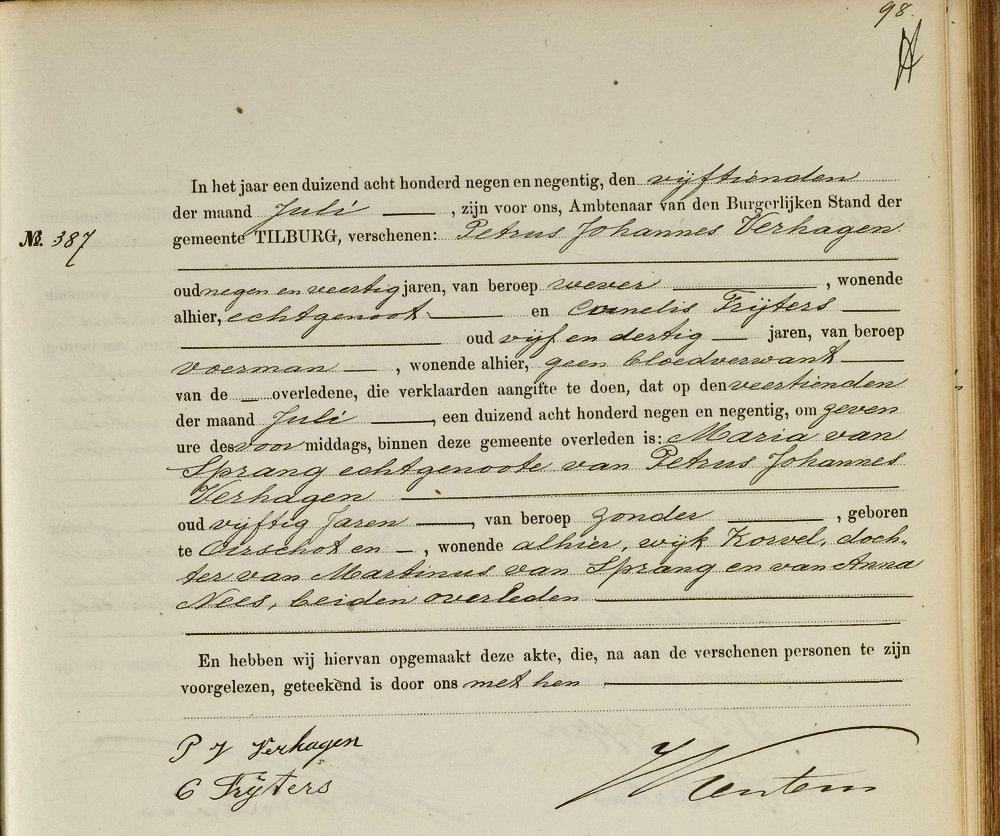 98.
In het jaar een duizend acht honderd negen en negentig, den vijftienden
der maand Juli , zijn voor ons, Ambtenaar van den Burgerlijken Stand der
№. 387 gemeente TILBURG, verschenen: Petrus Johannes Verhagen
oud negen en veertig jaren, van beroep wever , wonende
alhier, echtgenoot en Cornelis Frijters
oud vijf en dertig jaren, van beroep
voerman , wonende alhier, geen bloedverwant
van de overledene, die verklaarden aangifte te doen, dat op den veertienden
der maand Juli , een duizend acht honderd negen en negentig, om zeven
ure des voormiddags, binnen deze gemeente overleden is: Maria van
Sprang echtgenoote van Petrus Johannes
Verhagen
oud vijftig Jaren , van beroep zonder , geboren
te Oirschot en , wonende alhier, wijk Korvel, doch-
ter van Martinus van Sprang en van Anna
Nees, beiden overleden
En hebben wij hiervan opgemaakt deze akte, die, na aan de verschenen personen te zijn
voorgelezen, geteekend is door ons met hen
P J Verhagen
C Frijters